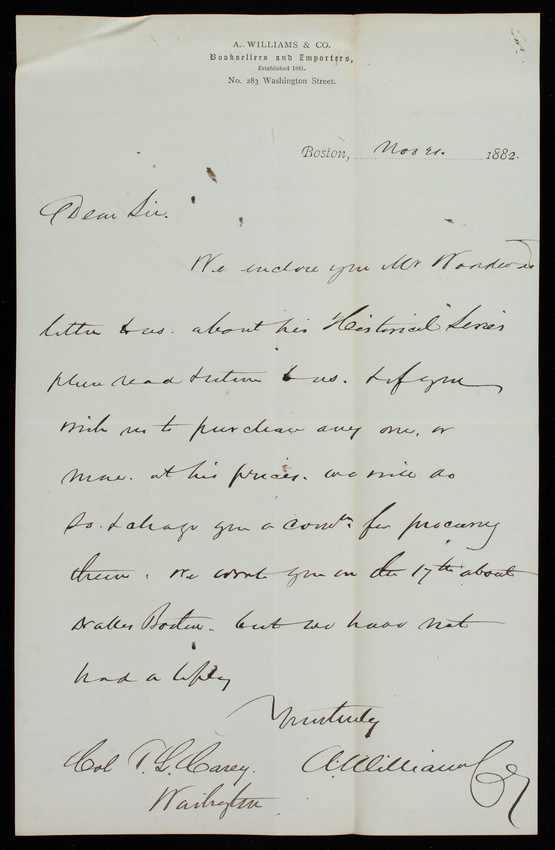 A. WILLIAMS & CO.
Booksellers and Importers,
Established 1841.
No. 283 Washington Street.
Boston, Nov 21. 1882.
Dear Sir.
We enclose you Mr Woodward's
letter to us. about his "Historical" Series
please read & return to us. & if you
wish us to purchase any one, or
more. at his prices. we will do
so. & charge you a comn. for procuring
them. We wrote you on the 17th about
Drakes Boston. but we have not
had a reply
Yours truly
A. Williams & Co
Col T. L. Casey.
Washington